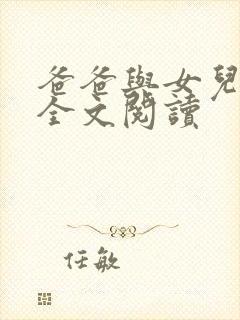 爸爸與女兒
全文閱讀
任敏